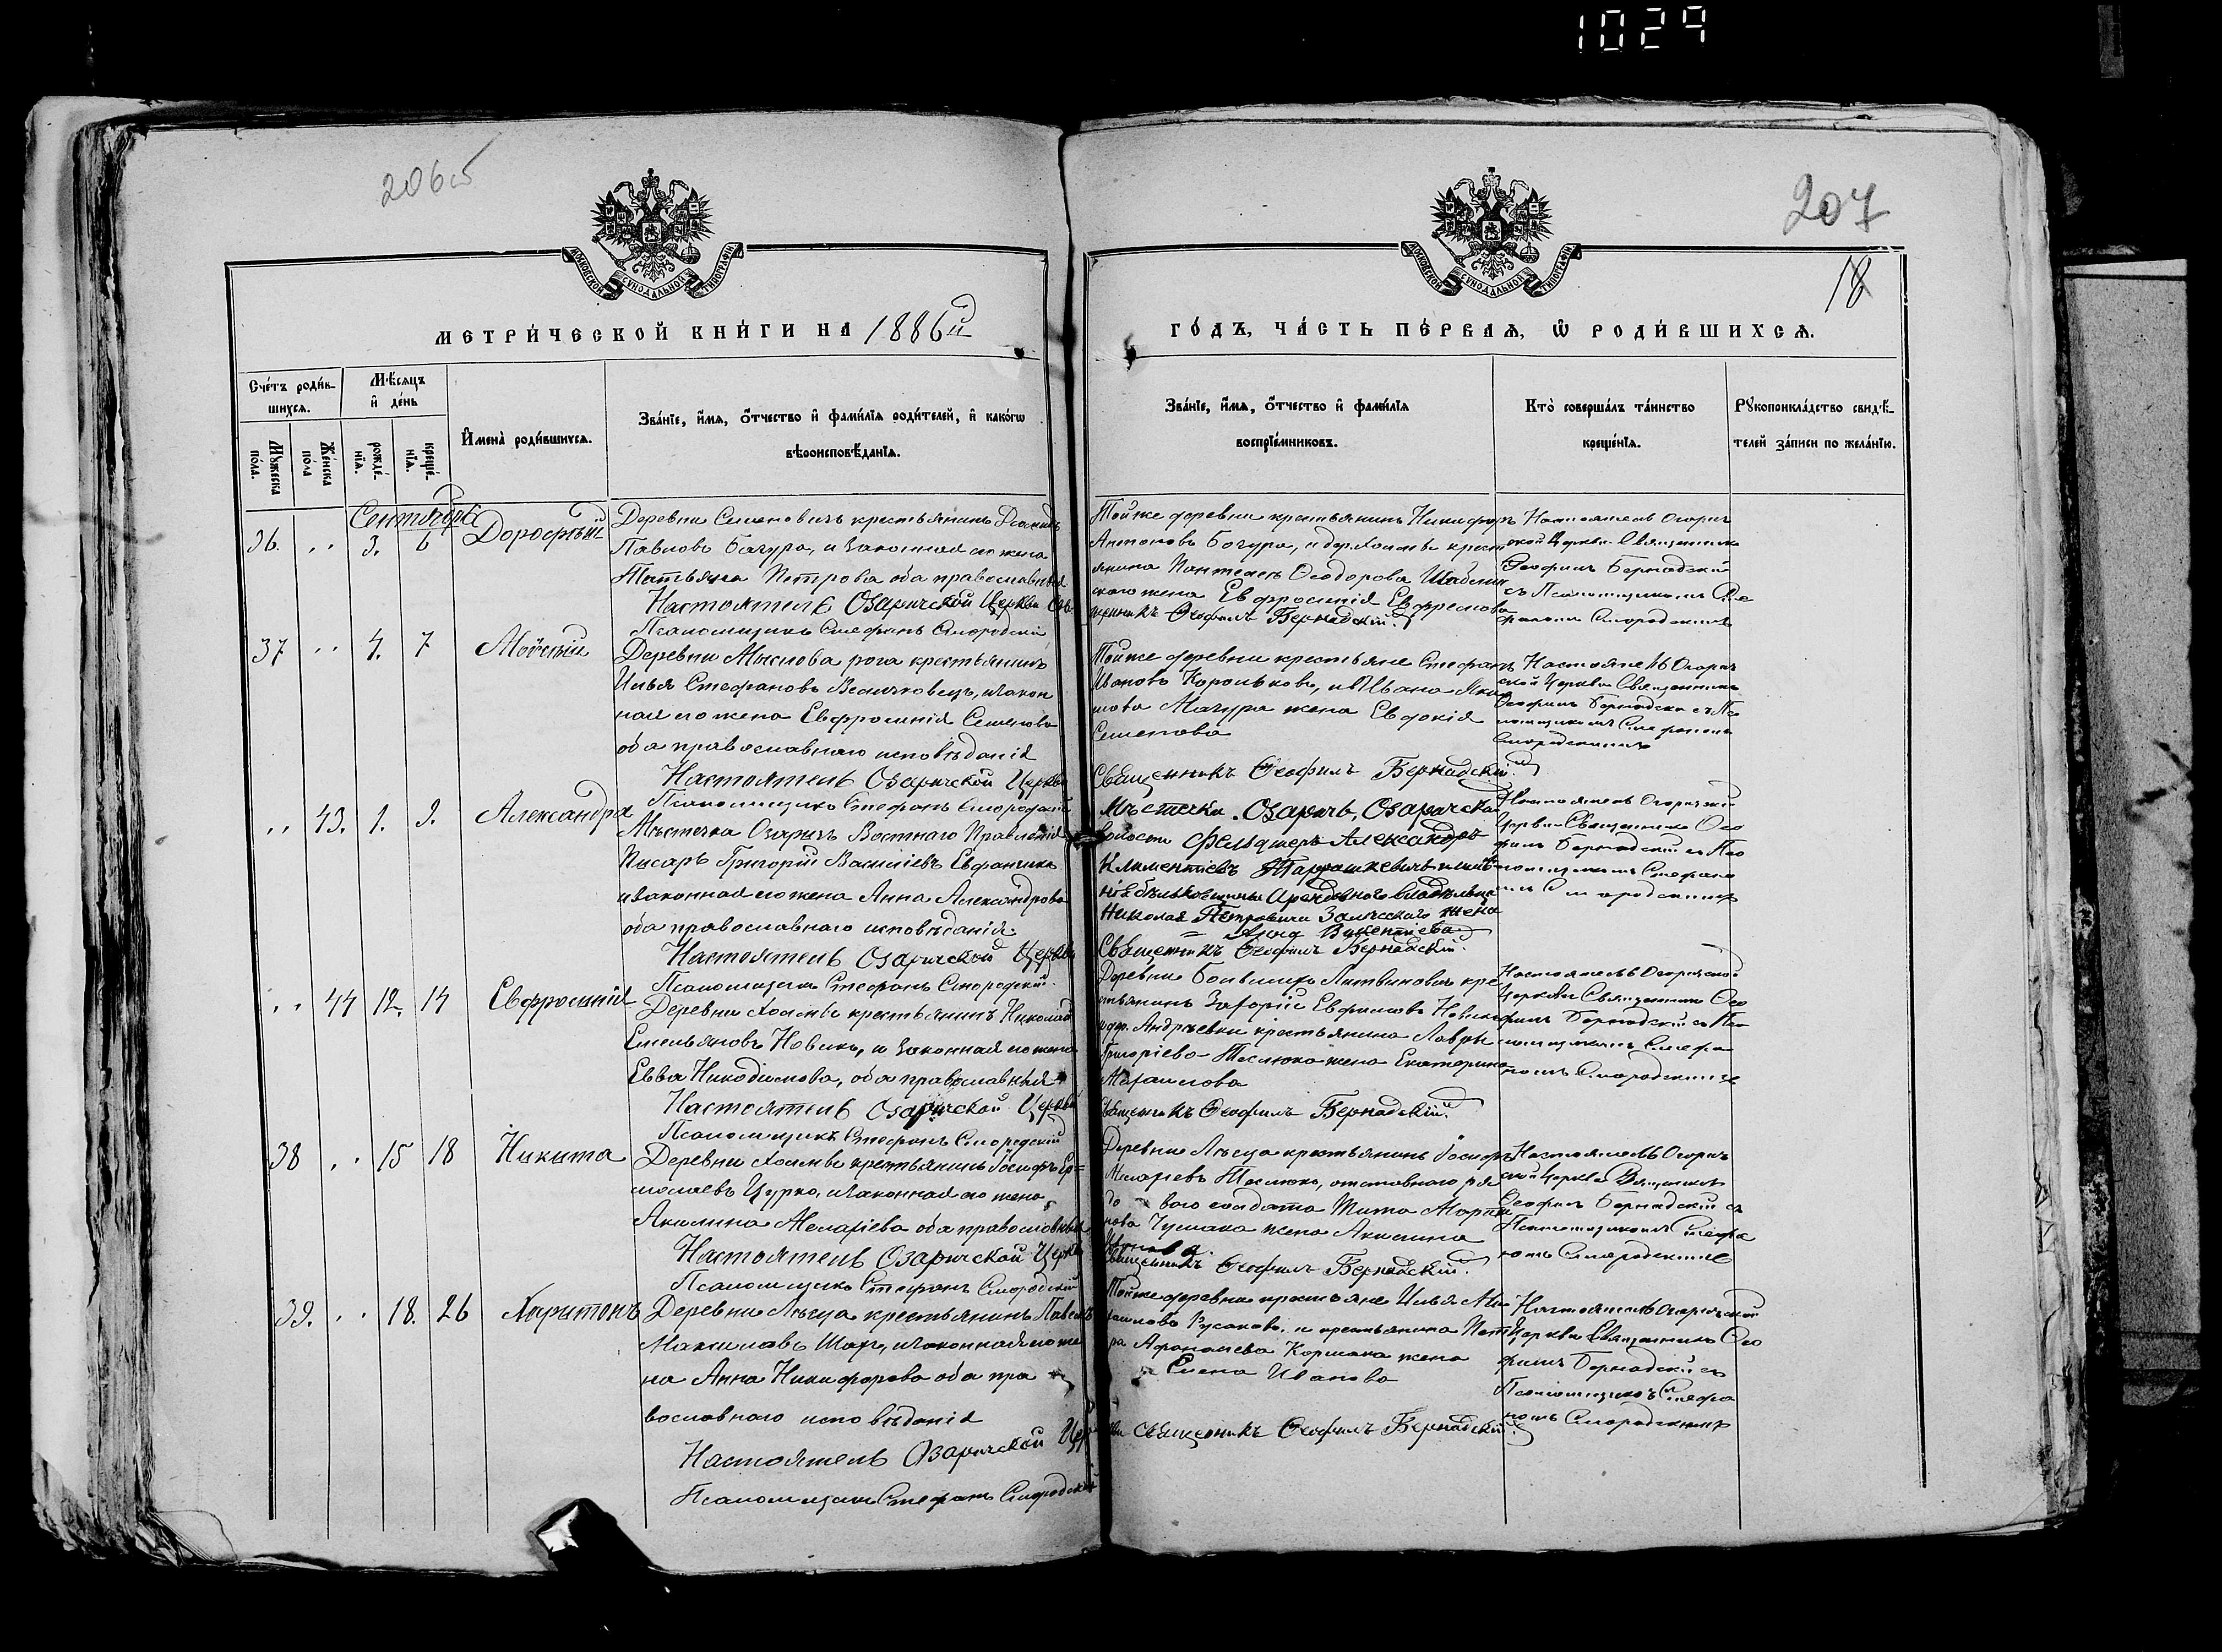 1029
206об
207
18
МОСКОВСКОЙ СѴНОДАЛЬНОЙ ТИПОГРАФІИ
МОСКОВСКОЙ СѴНОДАЛЬНОЙ ТИПОГРАФІИ
МЕТРИ́ЧЕСКОЙ КНИ́ГИ НА 1886й
ГО́ДЪ, ЧА́СТЬ ПЕ́РВАѦ, Ѡ РОДИ́ВШИХСѦ.
Сче́тъ роди́в-
шихсѧ.
Мѣ́сѧцъ
и҆ де́нь
Мꙋ́жеска
по́ла.
Же́нска
по́ла
рожде́-
нїѧ.
креще́-
нїѧ.
И҆мена̀ роди́вшихсѧ.
Зва́нїе, и҆́мѧ, ѻ҆́тчество и҆ фами́лїѧ роди́телей, и҆ како́гѡ
вѣроисповѣ́данїѧ.
Зва́нїе, и҆́мѧ, ѻ҆́тчество и҆ фами́лїѧ
воспрїе́мниковъ.
Кто̀ соверша́лъ та́инство
креще́нїѧ.
Рꙋкоприкла́дство свидѣ́-
телей за́писи по жела́нїю.
Сентября
36. " 3. 6 Дорофѣй
Деревни Семеновичъ крестьянинъ
Павловъ Бачура, и законная его жена
Татьяна Петрова оба православные
Настоятель Озаричской Церкви Свя-
Псаломщикъ Стефанъ Смородскій
Той же деревни крестьянинъ Никифоръ
Антоновъ Бачура, и дер. Холмъ крест
янина Пантелея Ѳеодорова
жена Евфросинія Ефремова
щенникъ Ѳеофилъ Бернадскій.
Настоятель Озарич
ской Церкви Священникъ
Ѳеофилъ Бернадскій
съ Псаломщикомъ Сте
фаномъ Смородскимъ
37 " 4. 7 Моѵсей
Деревни Мыслова рога крестьянинъ
Илья Стефановъ Величковецъ, и закон
ная его жена Евфросинія Семенова
оба православнаго исповѣданія
Настоятель Озаричской Церкви
Псаломщикъ Стефанъ Смородскій
Той же деревни крестьяне Стефанъ
Ивановъ Корольковъ, и Ивана
Мачура жена Евдокія
Семенова
Священникъ Ѳеофилъ Бернадскій.
Настоятель Озарич
ской Церкви Священникъ
Ѳеофилъ Бернадскій съ Пса
ломщикомъ Стефаномъ
Смородскимъ
" 43. 1. 9. Александра
Мѣстечка Озаричъ Волостнаго Правленія
Писарь Григорій Василіевъ Евфанчикъ
и законная его жена Анна Александрова
оба православнаго исповѣданія.
Настоятель Озаричской Церкви
Псаломщикъ Стефанъ Смородскій.
Мѣстечка Озаричъ, Озаричской
Волости Фельдшеръ Александръ
Климентіевъ и имѣ
нія Аренднаго владѣльца
Николая Петровича Залѣсскаго жена
Викентіева
Священникъ Ѳеофилъ Бернадскій.
Настоятель Озаричской
Церкви Священникъ Ѳео
филъ Бернадскій съ Пса
ломщикомъ Стефано
мъ Смородскимъ
" 44 12. 14 Евфросинія
Деревни Холмъ крестьянинъ Николай
Емельяновъ Новикъ, и законная его жена
Евва Никодимова, оба православные
Настоятель Озаричской Церкви
Псаломщикъ Стефанъ Смородскій
Деревни Литвиновичъ кре
стьянинъ Захорій Евфимовъ Новикъ
и дер. Андреевки крестьянина Лавры
Григоріева Теслюка жена Екатерина
Михаилова
Священникъ Ѳеофилъ Бернадскій.
Настоятель Озаричской
Церкви Священникъ Ѳео
филъ Бернадскій съ Пса
ломщикомъ Стефа
номъ Смородскимъ
38 " 15 18 Никита
Деревни Холмъ крестьянинъ Іосифъ Ер=
молаевъ Цурко, и законная его жена
Акилина Меларіева оба православные
Настоятель Озаричской Церкви
Псаломщикъ Стефанъ Смородскій
Деревни Лѣсца крестьянинъ Іосифъ
Теслюкъ, отставнаго ря
до ваго солдата Тита Марти
нова Чумака жена Акилина
Иванова.
Священникъ Ѳеофилъ Бернадскій.
Настоятель Озарич
ской Церкви Священникъ
Ѳеофилъ Бернадскій съ
Псаломщикомъ Стефа
номъ Смородскимъ
39. " 18. 26 Харитонъ
Деревни Лѣсца крестьянинъ Павелъ
Максимовъ и законная его же
на Анна Никифорова оба пра
вославнаго исповѣданія
Настоятель Озаричской Цер
Псаломщикъ Стефанъ Смородскій
Той же деревни крестьяне Илья Ми
хаиловъ Русаковъ, и крестьянина Пет
ра Афонасіева Кормака жена
Елена Иванова
кви Священникъ Ѳеофилъ Бернадскій.
Настоятель Озаричской
Церкви Священникъ Ѳео
филъ Бернадскій съ
Псаломщикомъ Стефа
номъ Смородскимъ